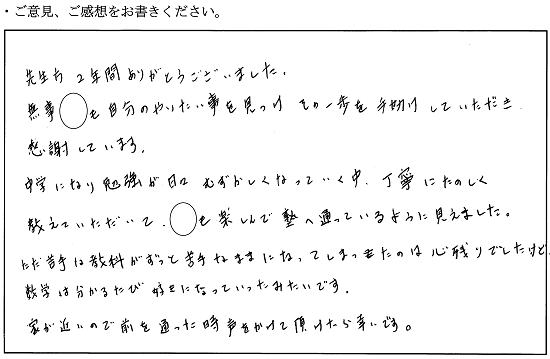 ・ご意見、ご感想をお書きください。
先生方 2年間ありがとうございました。
無事◯も自分のやりたい事を見つけ その一歩を手助けしていただき
感謝しています。
中学になり勉強が日々むずかしくなっていく中、丁寧にたのしく
教えていただいて、◯も楽しんで塾へ通っているように見えました。
ただ苦手な教科がずっと苦手なままになってしまったのは心残りでしたけど
数学は分かるたび好きになっていったみたいです。
家が近いので前を通った時声をかけて頂けたら幸いです。